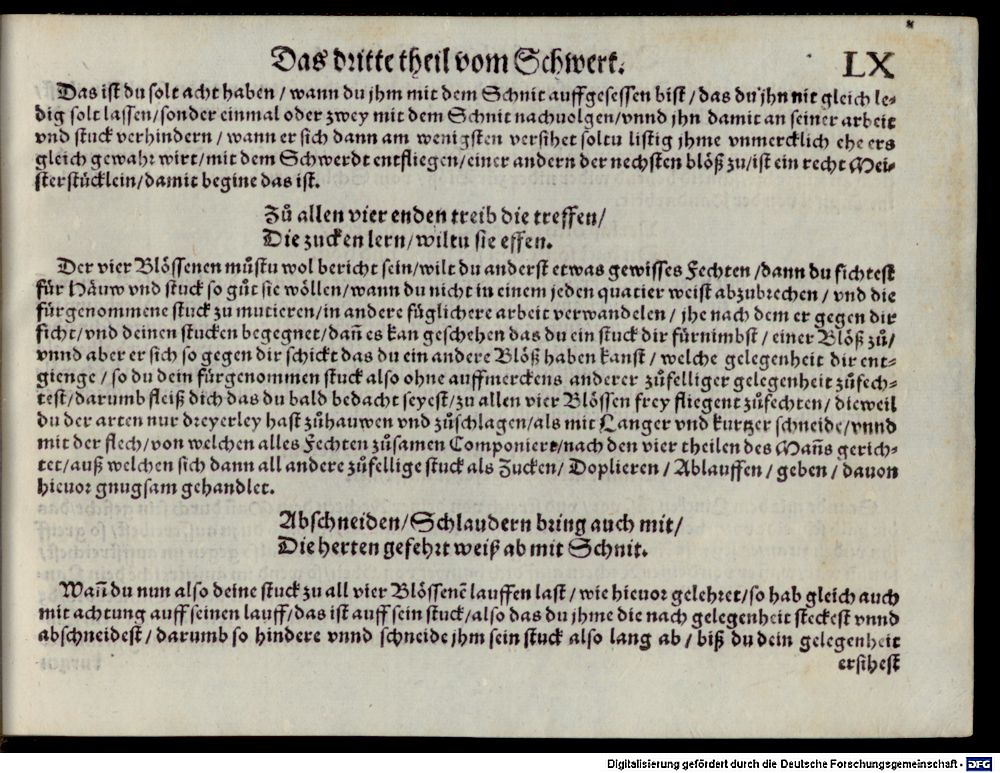 Das dritte theil vom Schwert. LX
Das ist du solt acht haben / wann du jhm mit dem Schnit auffgesessen bist / das du jhn nit gleich le-
dig solt lassen / sonder einmal oder zwey mit dem Schnit nachuolgen / vnnd jhn damit an seiner arbeit
vnd stuck verhindern / wann er sich dann am wenigsten versihet soltu listig jhme vnmercklich ehe ers
gleich gewahr wirt / mit dem Schwerdt entfliegen / einer andern der nechsten blöß zu / ist ein recht Mei-
sterstücklein / damit begine das ist.
Zů allen vier enden treib die treffen /
Die zucken lern / wiltu sie effen.
Der vier Blössenen můstu wol bericht sein / wilt du anderst etwas gewisses Fechten / dann du fichtest
für Häuw vnd stuck so gůt sie wöllen / wann du nicht in einem jeden quatier weist abzubrechen / vnd die
fürgenommene stuck zu mutieren / in andere füglichere arbeit verwandelen / jhe nach dem er gegen dir
ficht / vnd deinen stucken begegnet / dañ es kan geschehen das du ein stuck dir fürnimbst / einer Blöß zů /
vnnd aber er sich so gegen dir schickt das du ein andere Blöß haben kanst / welche gelegenheit dir ent-
gienge / so du dein fürgenommen stuck also ohne auffmerckens anderer zůfelliger gelegenheit zůfech-
test / darumb fleiß dich das du bald bedacht seyest / zu allen vier Blössen frey fliegent zůfechten / dieweil
du der arten nur dreyerley hast zůhauwen vnd zůschlagen / als mit Langer vnd kurtzer schneide / vnnd
mit der flech / von welchen alles Fechten zůsamen Componiert / nach den vier theilen des Mañs gerich-
tet / auß welchen sich dann all andere zůfellige stuck als Zucken / Doplieren / Ablauffen / geben / dauon
hieuor gnugsam gehandlet.
Abschneiden / Schlaudern bring auch mit /
Die herten gefehrt weiß ab mit Schnit.
Wañ du nun also deine stuck zu all vier Blössenē lauffen last / wie hieuor gelehret / so hab gleich auch
mit achtung auff seinen lauff / das ist auff sein stuck / also das du jhme die nach gelegenheit steckest vnnd
abschneidest / darumb so hindere vnnd schneide jhm sein stuck also lang ab / biß du dein gelegenheit
ersihest
Digitalisierung gefördert durch die Deutsche Forschungsgemeinschaft - DFG